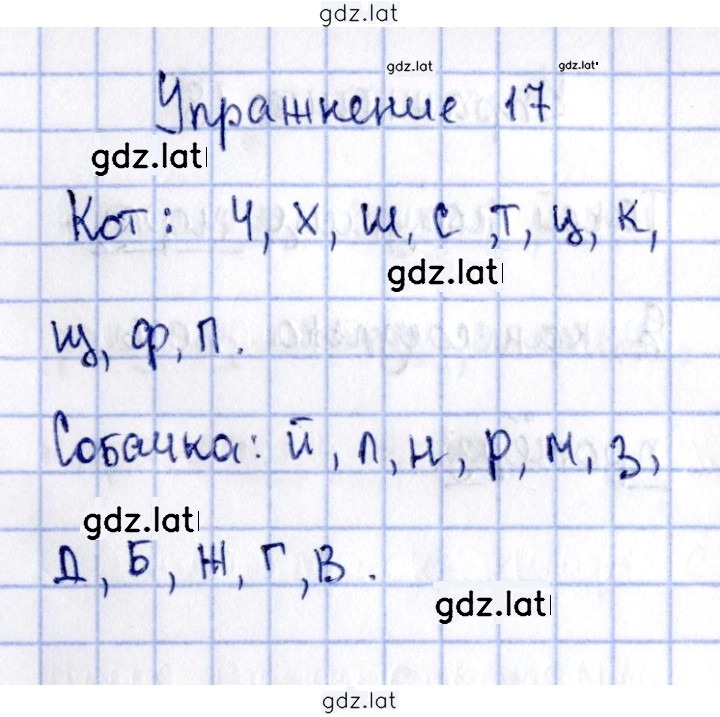 gdz.lat
gdz.lat gdz.lat
Упражнение 17
gdz.lat
Кот: Ч, х, ш, с, т, ц, к,
gdz.lat
щ, ф, п.
Собачка: й, л, н, р, м, з,
gdz.lat
Д, Б, Ж, Г, В.
gdz.lat
gdz.lat